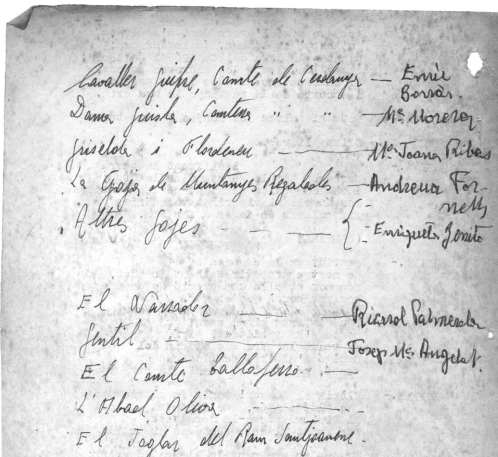 Cavaller Guifre, Comte de Cerdanya — Enric Borràs.
Dama Guisla, Comtesa " " — Mª Morera
Griselda i Flordeneu — Mª Joana Ribas
La Goja de Muntanyes Regalades — Andreua Fornells
Altres Gojes — { - Enriqueta
El Narrador — Ricard
Gentil — Josep Mª Angelat.
El Comte Tallaferro —
L'Abad Oliva
El Joglar del Ram Santjoanenc.